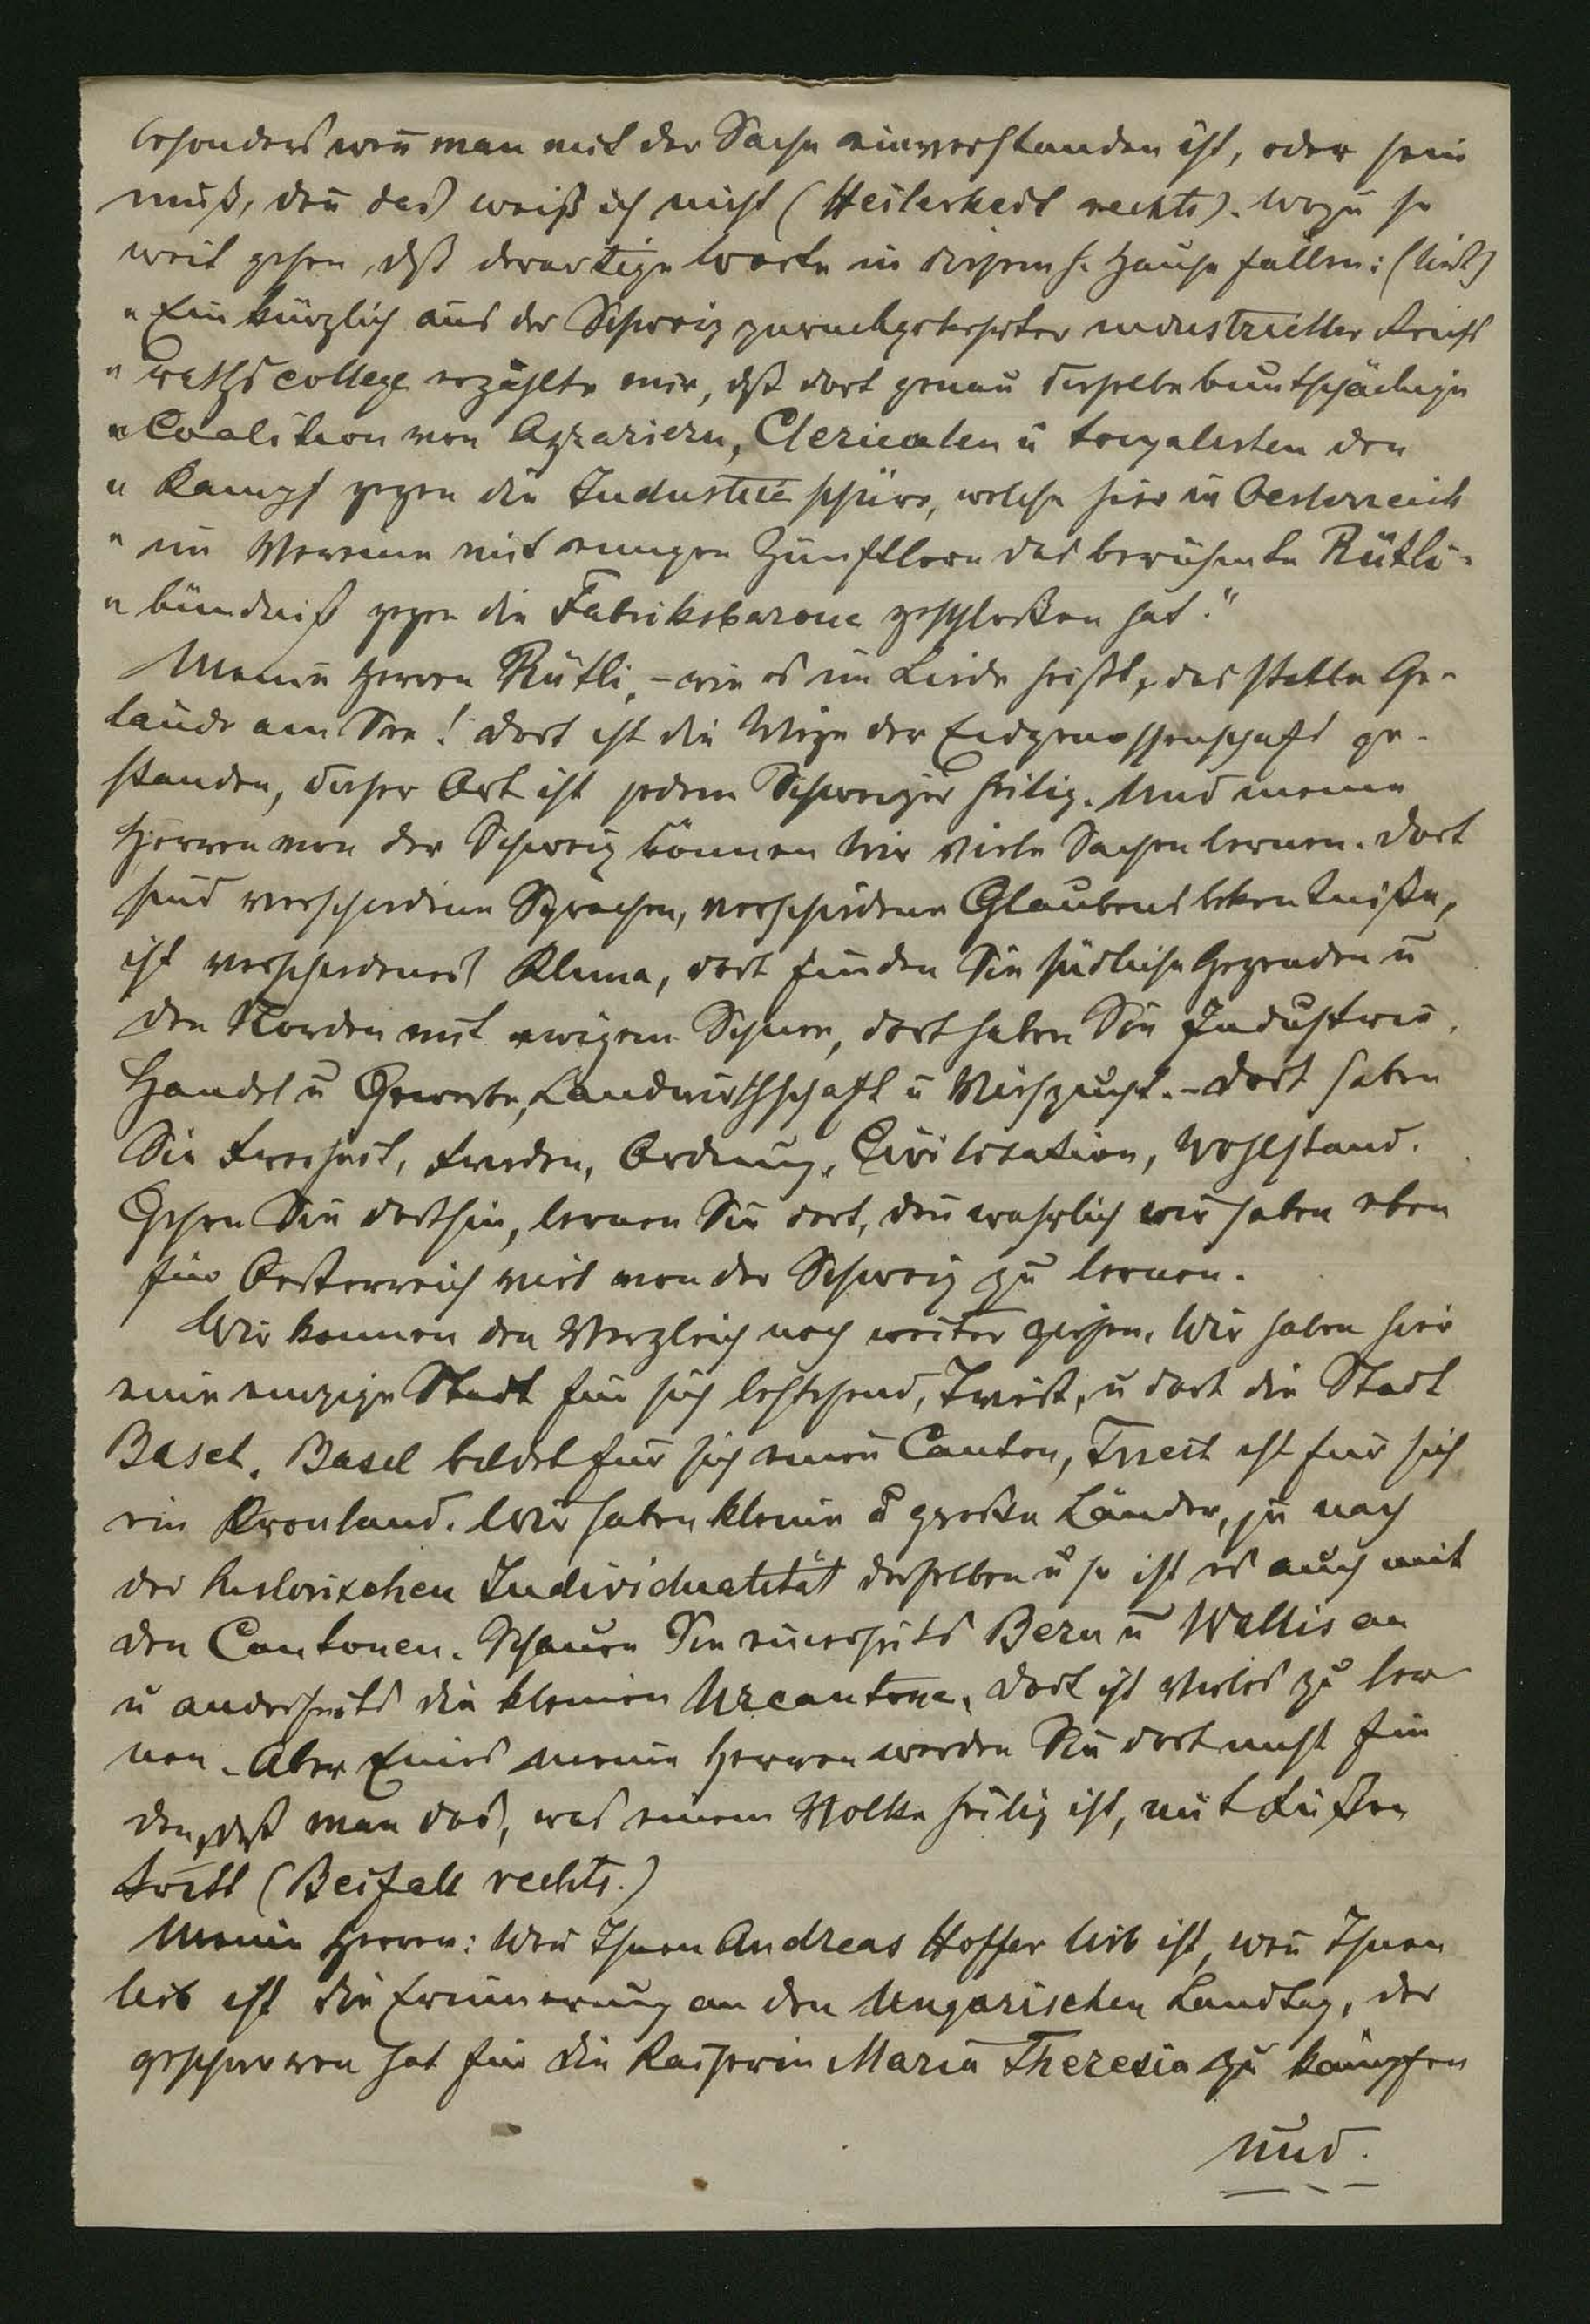 besonders wen̄ man mit der Sache einverstanden ist, oder sein
muß, den̄ das weiß ich nicht (Heiterkeit rechts). Wozu so
weit gehen, dß derartige Worte in diesem h. Hause fallen: (liest)
"Ein kürzlich aus der Schweiz zurückgekehrter industrieller Reichs
"rathscollege erzählte mir, dß dort genau dieselbe buntscheckige
"Coalition von Agrariern, Clericalen u den
"Kampf gegen die Industrie schüre, welche hier in Oesterreich
"im Vereine mit einigen Zünftlern das berühmte Rütli-
"bündniß gegen die Fabriksbarone geschloßen hat."
Meine Herren Rütli, – wie es im Liede heißt, das stille Ge-
lände am See! dort ist die Wiege der Eidgenossenschaft ge-
standen, dieser Ort ist jedem Schweizer heilig. Und meine
Herren von der Schweiz können wir viele Sachen lernen. Dort
sind verschiedene Sprachen, verschiedene Glaubensbekentniße,
ist verschiedenes Klima, dort finden Sie südliche Gegenden u
den Norden mit ewigem Schnee, dort haben Sie Industrie,
Handel u Gewerbe, Landwirthschaft u Viehzucht. – Dort haben
Sie Freiheit, Frieden, Ordnung, Civilisation, Wohlstand.
Gehen Sie dorthin, lernen Sie dort, den̄ wahrlich wir haben eben
für Oesterreich viel von der Schweiz zu lernen.
Wir kennen den Vergleich noch weiter ziehen. Wir haben hier
eine einzige Stadt für sich bestehend, Triest, u dort die Stadt
Basel. Basel bildet für sich einen Canton, Triest ist für sich
ein Kronland. Wir haben kleine u große Länder, je nach
der historischen Individualität derselben u so ist es auch mit
den Cantonen. Schauen Sie einerseits Bern u Wallis an
u anderseits die kleinen Urcantone. Dort ist Vieles zu ler
nen. Aber Eines meine Herren werden Sie dort nicht fin
den, dß man das, was einem Volke heilig ist, mit Füßen
tritt (Beifall rechts.)
Meine Herren: Wen̄ Ihnen Andreas Hoffer lieb ist, wen̄ Ihnen
lieb ist die Erinnerung an den Ungarischen Landtag, der
geschworen hat für die Kaiserin Maria Theresia zu kämpfen
und.